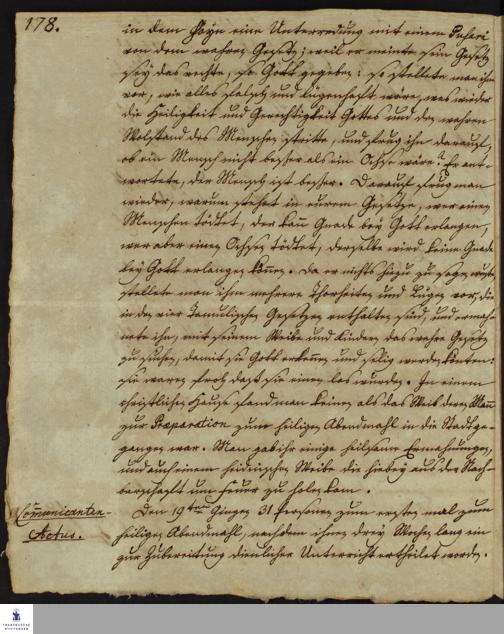 178.
in dem Hayn eine Unterredung mit einem Pusari
von dem wahren Gesetz; weil er meinte sein Gesetz
sey das rechte, so Gott gegeben: so stellete man ihm
vor, wie alles falsch und lügenhaft wäre, was wieder
die Heiligkeit und Gerechtigkeit Gottes und den wahren
Wolstand des Menschen stritte, und frug ihn darauf,
ob ein Mensch nicht besser als ein Ochse wäre? Er ant-
wortete, der Mensch ist besser. Darauf frug man
wieder, warum stehet in eurem Gesetze, wer einen
Menschen tödtet, der kan Gnade bey Gott erlangen,
wer aber einen Ochsen tödtet, derselbe wird keine Gnade
bey Gott erlangen können. Da er nichts hierzu zu sagen wuste
stellete man ihm mehrere Thorheiten und Lügen vor, die
in den vier Tamulischen Gesetzen enthalten sind, und ermah-
nete ihn, mit seinem Weibe und Kindern das wahre Gesetz
zu suchen, damit sie Gott erkennen und selig werden könten:
sie waren froh dass sie einen los wurden. In einem
christlichen Hause fand man keinen als das Weib deren Mann
zur Præparation zum heiligen Abendmahl in die Stadt ge-
gangen war. Man gab ihr einige heilsame Ermahnungen,
und auch einem heidnischen Weibe die hiebey aus der Nach-
barschaft um Feuer zu holen kam.
Com̄unicanten-
Actus.
Den 19ten Gingen 31 Personen zum ersten mal zum
heiligen Abendmahl, nachdem ihnen drey Wochen lang ein
zur Zubereitung dienlicher Unterricht ertheilet worden.
FRANCKESCHE
STIFTUNGEN